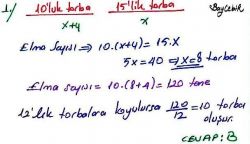 1/ 10'luk torba 15'lik torba
x+4 x
Elma sayısı ⇒ 10.(x+4) = 15.x
5x = 40 ⇒ x = 8 torba
Elma sayısı = 10.(8+4) = 120 tane
12'lik torbalara koyulursa 120/12 = 10 torba
oluşur.
CEVAP: B